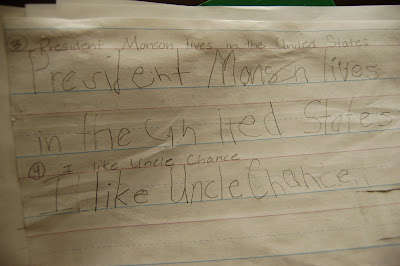 ③ President Monson lives in the United States
President Monson lives
in the United States
④ I like Uncle Chance
I like Uncle Chance.